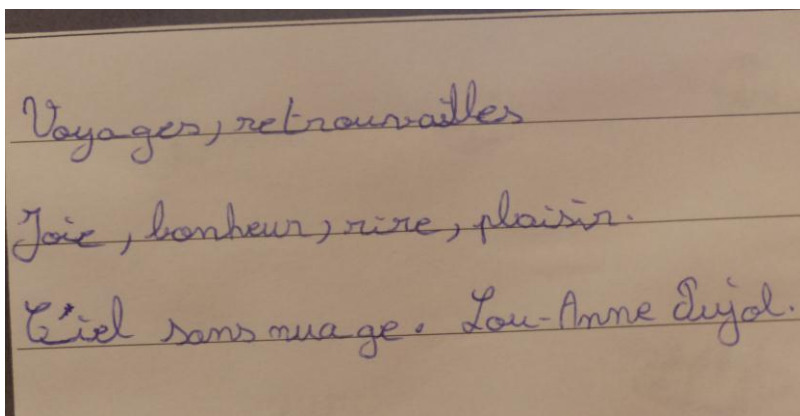 Voyages, retrouvailles
Joie, bonheur, rire, plaisir.
Ciel sans nuage. Lou-Anne Pujol.